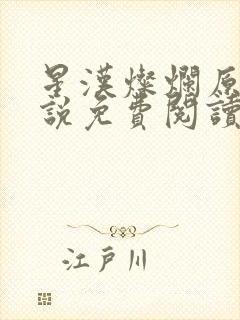 星漢燦爛原
說免費閱讀
江戶川